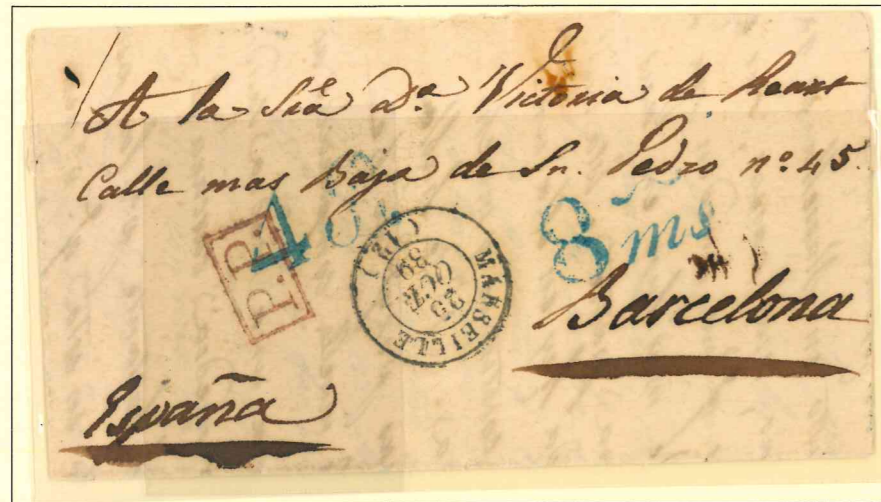 A la Sra Da Victoria de
Calle mas Baja de Sn. Pedro no. 45.
P.P.
8 ms
MARSEILLE (12)
25
OCT
39
Barcelona
España